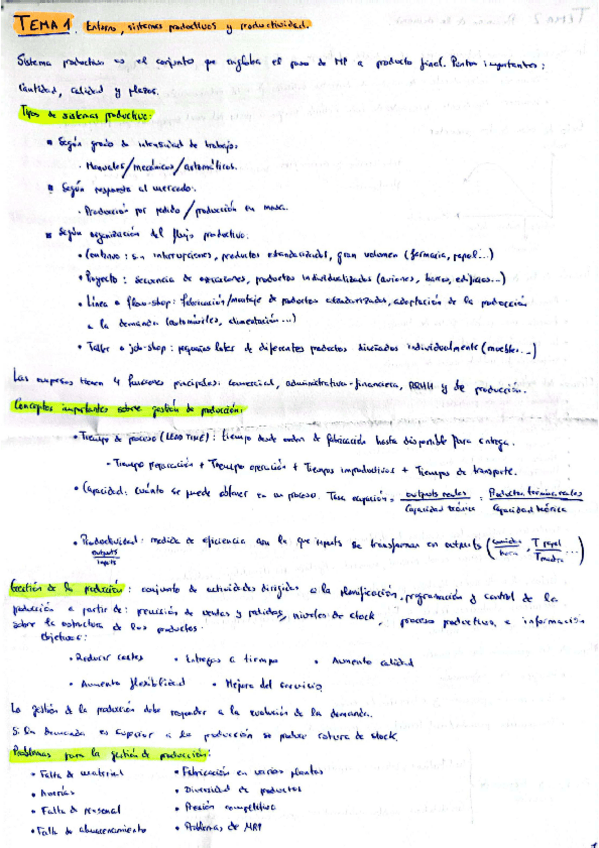 TEMA 1. Entorno, sistemas productivos y productividad.
Sistema productivo es el conjunto que engloba el paso de MP a producto final. Puntos importantes:
Cantidad, calidad y plazos.
Tipos de sistemas productivos:
Según grado de intensidad de trabajo:
· Manuales/mecánicos/automáticos.
Según respuesta al mercado:
· Producción por pedido/producción en masa.
Según organización del flujo productivo:
· Continuo: sin interrupciones, productos estandarizados, gran volumen (farmacia, papel...)
· Proyecto: secuencia de operaciones, productos individualizados (aviones, barcos, edificios...)
· Línea o flow-shop: fabricación/montaje de productos estandarizados, adaptación de la producción
a la demanda (automóviles, alimentación...)
· Taller o job-shop: pequeños lotes de diferentes productos diseñados individualmente (muebles...)
Las empresas tienen 4 funciones principales: comercial, administrativa-financiera, RRHH y de producción.
Conceptos importantes sobre gestión de producción:
· Tiempo de proceso (LEAD TIME): tiempo desde orden de fabricación hasta disponible para entrega.
· Tiempo preparación + Tiempo operación + Tiempos improductivos + Tiempos de transporte.
· Capacidad: cuánto se puede obtener en un proceso. Tasa ocupación = outputs reales / Capacidad teórica = Productos terminados reales / Capacidad teórica
· Productividad: medida de eficiencia con la que inputs se transforman en outputs (comidas / hora, T papel / T madera ...)
outputs / inputs
Gestión de la producción: conjunto de actividades dirigidas a la planificación, programación y control de la
producción a partir de: previsiones de ventas y pedidos, niveles de stock, proceso productivo, e información
sobre la estructura de los productos.
Objetivos:
· Reducir costes · Entregas a tiempo · Aumento calidad
· Aumento flexibilidad · Mejora del servicio
La gestión de la producción debe responder a la evolución de la demanda.
Si la demanda es superior a la producción se produce rotura de stock.
Problemas para la gestión de producción:
· Falta de material · Fabricación en varias plantas
· Averías · Diversidad de productos
· Falta de personal · Presión competitiva
· Falta de almacenamiento · Problemas de MRP
1